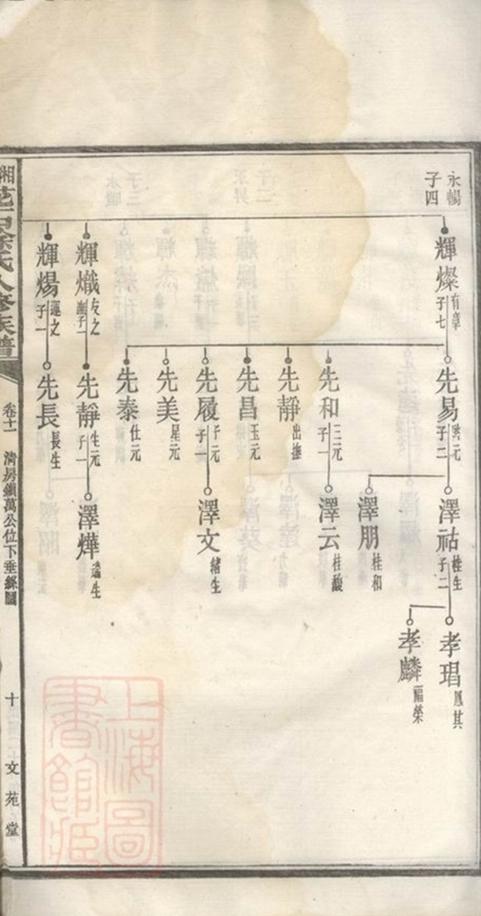 永暢
子四
輝燦 有章 子七
先易 子二
澤祜 桂生 子二
孝琩 鳳其
孝麟 福榮
澤朋 桂和
先和 三元 子一
澤云 桂馥
先靜 出撫
先昌 玉元
先履 子一
澤文 緒生
先美 星元
先泰 仕元
輝熾 友之 子一
先靜 生元 子一
澤燁 遠生
輝煬 蓮之 子一
先長 長生
氏八修族譜
卷十一
清房鎮萬公位下垂絲圖
十
文苑堂
上海圖
書館藏